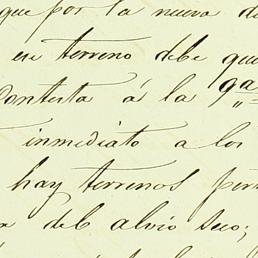 que por la nueva di
ese terreno debe que
Contesta á la 9ª
inmediato a los
hay terrenos per
del alvio seo;